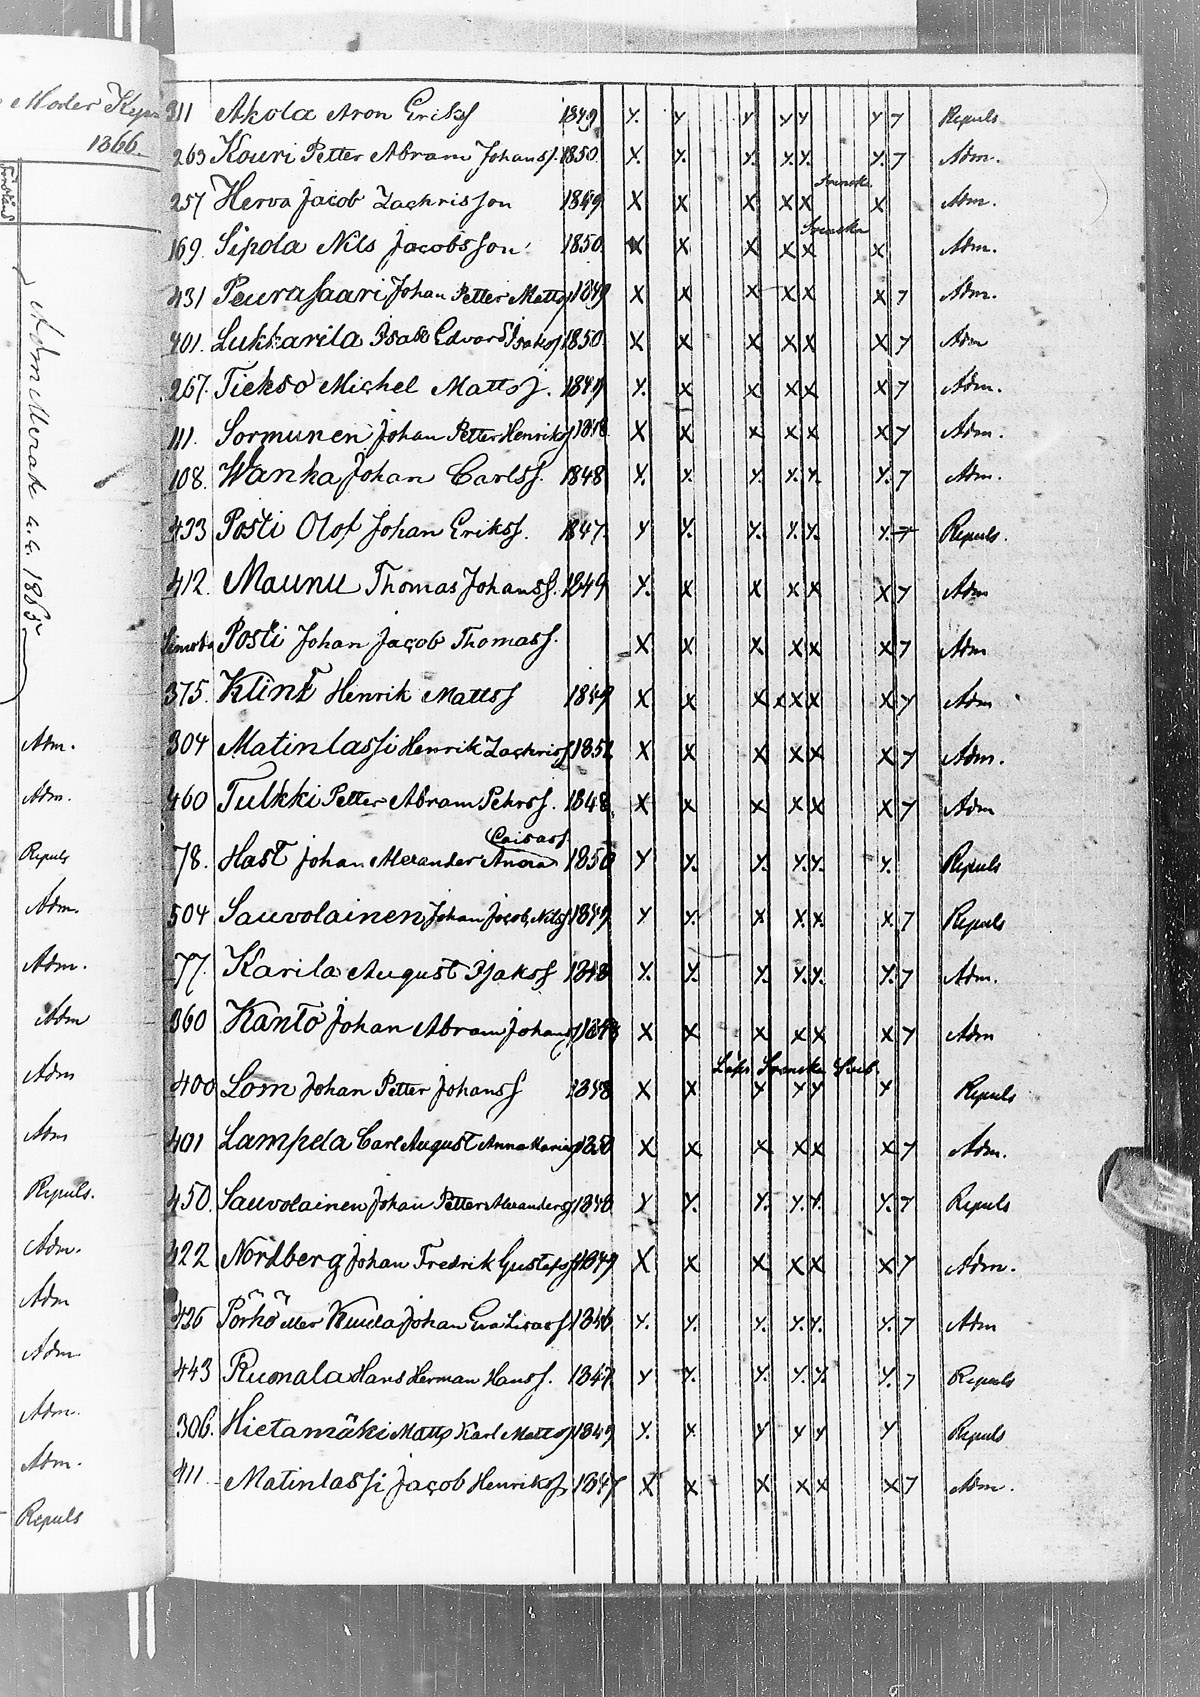 Moder Kyrk
1866.
Adm Merak a.k. 1865
Adm.
Adm.
Repuls
Adm.
Adm.
Adm
Adm
Adm
Repuls.
Adm.
Adm
Adm
Adm.
Adm.
Repuls
311 Akola Aron Erikss 1849 Y. Y Y Y Y Y 7 Repuls
263 Kouri Petter Abram Johanss. 1850 Y. Y. Y. Y. Y. Y. 7 Adm.
Svensk
257 Herva Jacob Zachrisson 1849 X X X X X X Adm.
Svenska
169. Sipola Nils Jacobsson 1850 X X X X X X Adm.
431 Peurasaari Johan Petter Mattss 1849 X X X X X X 7 Adm.
401. Lukkarila Isak Edvard Isakss 1850 X X X X X X 7 Adm
267. Tiekso Michel Mattss. 1849 Y. X X X X X 7 Adm.
111. Sormunen Johan Petter Henrikss 1848 X X X X X X 7 Adm.
108. Wanha Johan Carlss. 1848 Y. Y. Y. Y. Y. Y. 7 Adm.
433 Posti Olof Johan Erikss. 1847 Y Y. Y. Y. Y. Y. 7 Repuls.
412. Maunu Thomas Johanss. 1849 Y. X X X X X 7 Adm
Posti Johan Jacob Thomass. X X X X X X 7 Adm
375. Klint Henrik Mattss 1849 X X X X X X X 7 Adm
304 Matinlassi Henrik Zachriss 1852 X X X X X X 7 Adm.
460 Tulkki Petter Abram Pehrss. 1848 X X X X X X 7 Adm
Caisass
78. Hast Johan Alexander Anora 1850 Y Y. Y. Y. Y. Y. Repuls
504 Sauvolainen Johan Jacob Nilss 1849 Y Y. X X. X. X. 7 Repuls
77. Karila August Isakss 1848 Y. Y. Y. Y. Y. Y. 7 Adm.
360 Kanto Johan Abram Johanss 1848 X X X X X X 7 Adm
Läss Svenska
400 Lom Johan Petter Johanss 1848 X X Y Y Y Y Repuls
401 Lampela Carl August Anna Mariass 1850 X X X X X X 7 Adm.
450. Sauvolainen Johan Petter Alexanderss 1848 Y Y. Y. Y. Y. Y. 7 Repuls
422 Nordberg Johan Fredrik Gustafss 1849 X X X X X X 7 Adm.
426 Pörhö eller Kuula Johan Eva Lisass 1846 Y. Y. Y. Y. Y. Y. 7 Adm
443 Ruonala Hans Herman Hanss. 1847 Y Y. Y. Y. Y. Y. 7 Repuls
306. Hietamäki Matts Karl Mattss 1849 Y. X Y Y Y Y Repuls
411 Matinlassi Jacob Henrikss 1847 X X X X X X 7 Adm.